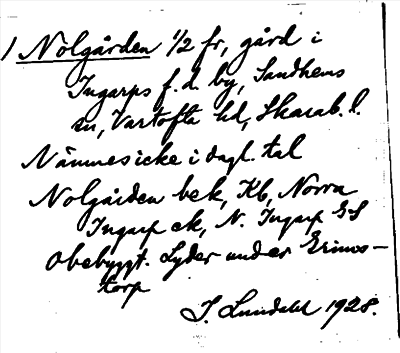 1 Nolgården 1/2 fr, gård i
Ingarps f.d. by, Sandhems
sn, Vartofta hd, Skarab. l.
Nämnes icke i dagl. tal
Nolgården bek, Kb, Norra
Ingarp ek, N. Ingarp GS
Obebyggt. Lyder under Grims-
torp
I. Lundahl 1928.